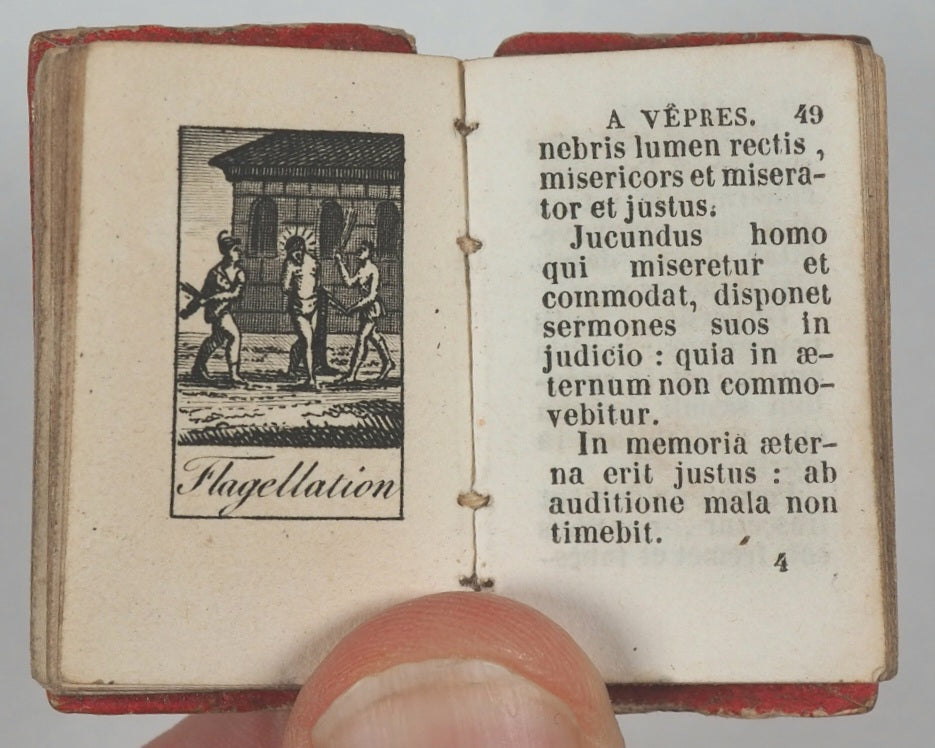 Flagellation
A VÊPRES. 49
nebris lumen rectis ,
misericors et misera-
tor et justus.
Jucundus homo
qui miseretur et
commodat, disponet
sermones suos in
judicio : quia in æ-
ternum non commo-
vebitur.
In memoria æter-
na erit justus : ab
auditione mala non
timebit.
4